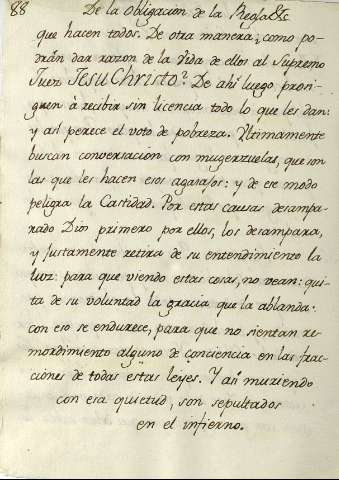 88 De la Obligacion de la Regla &c
que hacen todos. De otra manera, como po-
drán dar razon de la vida de ellos al Supremo
Juez JesuChristo? De ahi luego prosi-
guen á recibir sin licencia todo lo que les dan:
y asi perece el voto de pobreza. Ultimamente
buscan conversacion con mugerzuelas, que son
las que les hacen esos agasajos: y de ese modo
peligra la Castidad. Por estas causas desampa-
rado Dios primero por ellos, los desampara,
y justamente retira de su entendimiento la
luz: para que viendo estas cosas, no vean: qui-
ta de su voluntad la gracia que la ablanda.
con eso se endurece, para que no sientan re-
mordimiento alguno de conciencia en las frac-
ciones de todas estas leyes. Y asi muriendo
con esa quietud, son sepultados
en el infierno.